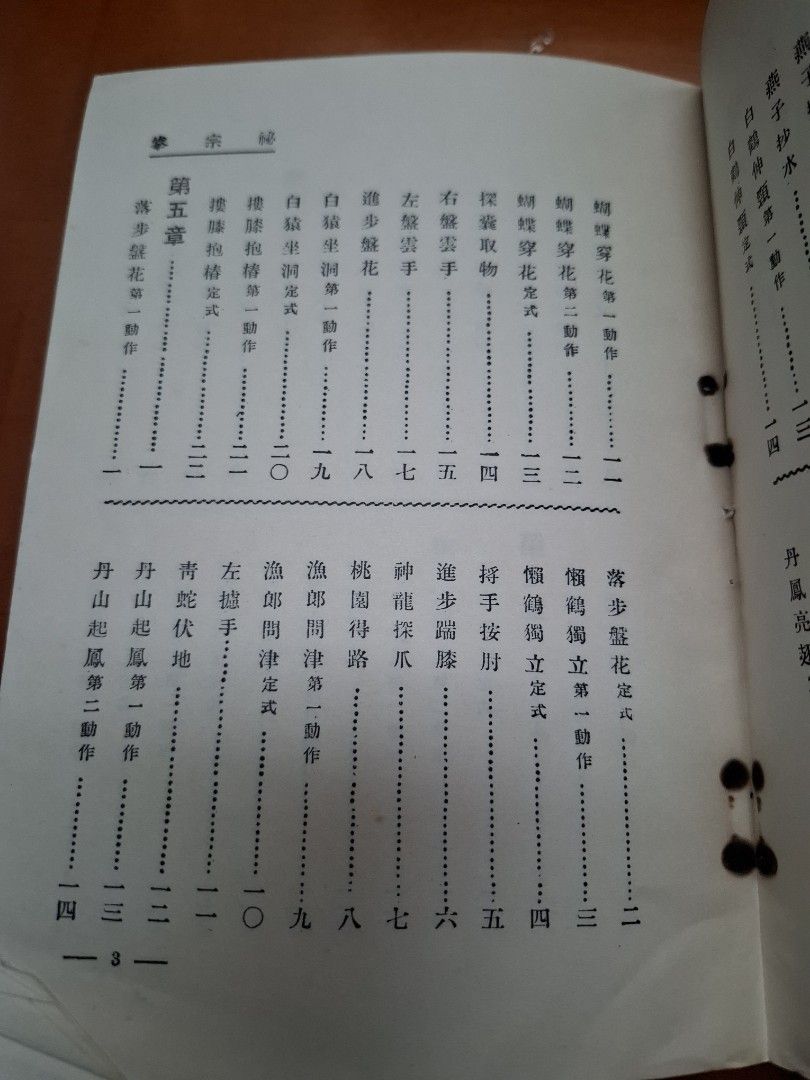 燕子
燕子抄水
白鶴伸頸第一動作……一三
白鶴伸頸定式……一四
丹鳳亮翅
祕宗拳
蝴蝶穿花第一動作……一一
蝴蝶穿花第二動作……一二
蝴蝶穿花定式……一三
探囊取物……一四
右盤雲手……一五
左盤雲手……一七
進步盤花……一八
白猿坐洞第一動作……一九
白猿坐洞定式……二〇
摟膝抱椿第一動作……二一
摟膝抱椿定式……二二
第五章……一
落步盤花第一動作……一
落步盤花定式……二
懶鶴獨立第一動作……三
懶鶴獨立定式……四
捋手按肘……五
進步踹膝……六
神龍探爪……七
桃園得路……八
漁郎問津第一動作……九
漁郎問津定式……一〇
左攄手……一一
靑蛇伏地……一二
丹山起鳳第一動作……一三
丹山起鳳第二動作……一四
— 3 —